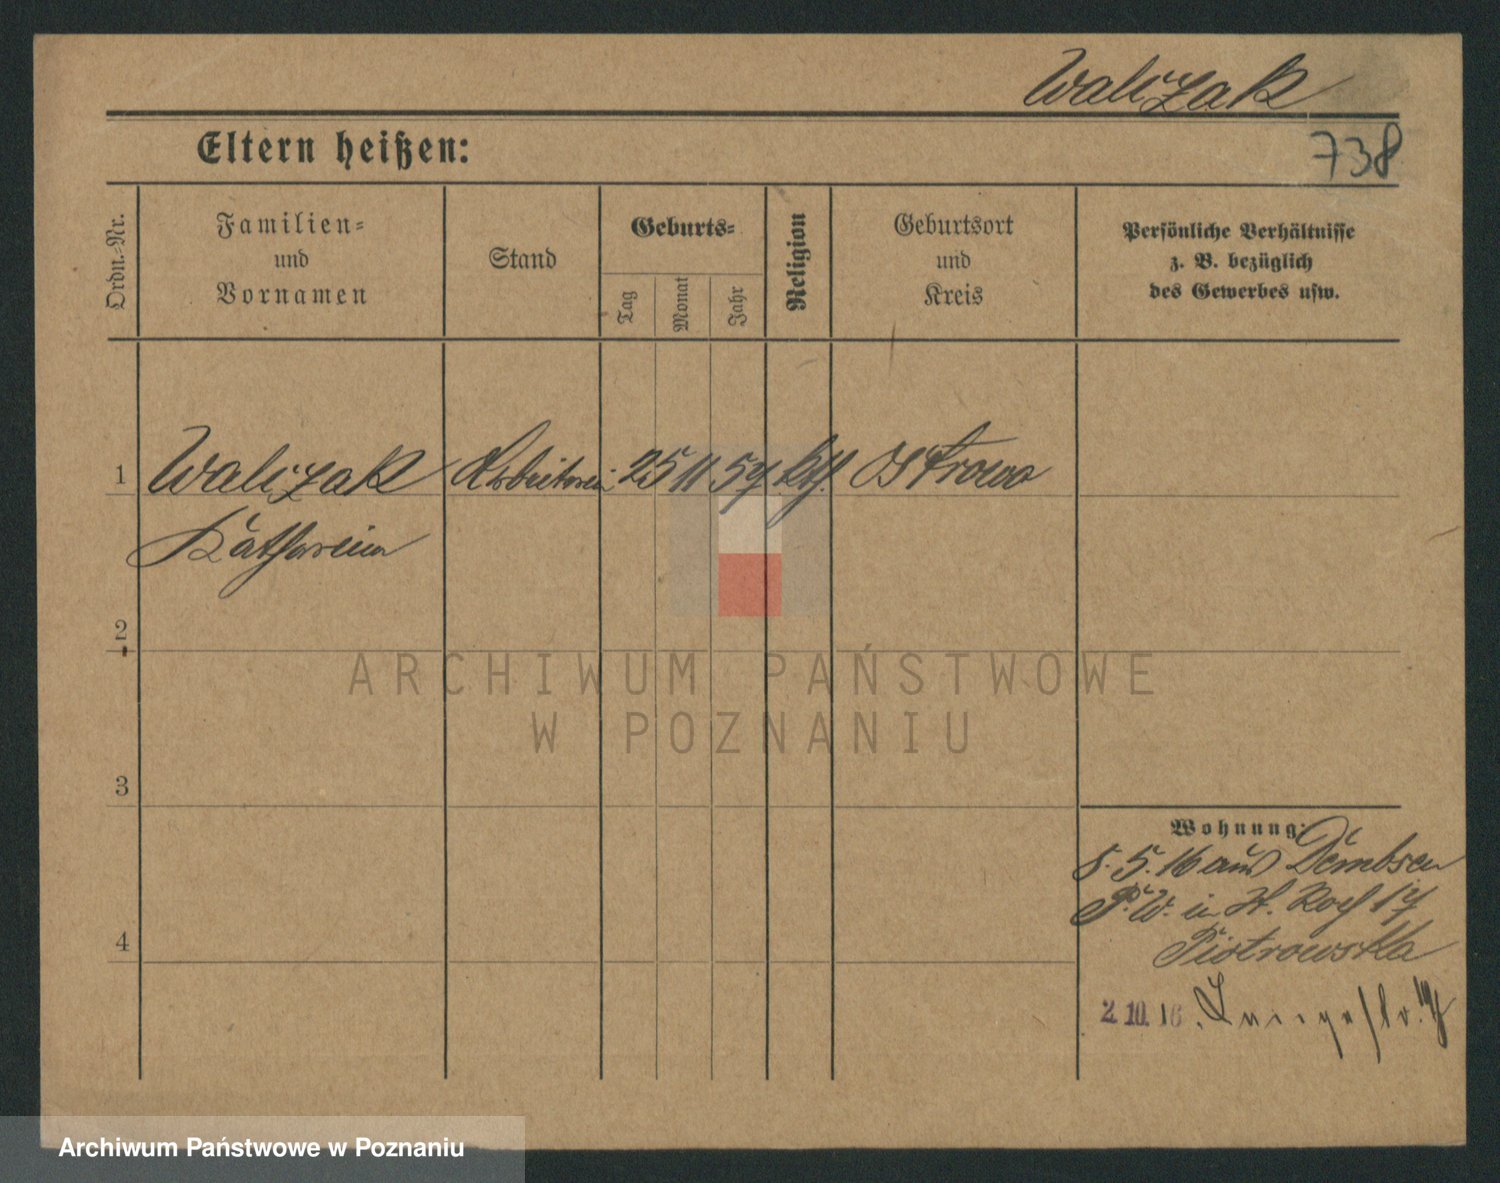 Walczak
738
Eltern heißen:
Ordn.-Nr.
Familien-
und
Vornamen
Stand
Geburts-
Tag
Monat
Jahr
Religion
Geburtsort
und
Kreis
Persönliche Verhältnisse
z. B. bezüglich
des Gewerbes usw.
1 Walczak Arbeiterin 25 11 59 kth. Ostrowo
Katharina
2
3
4
Wohnung:
5. 5. 16 aus Dembsen
P. W. in H. 17
Piotrowska
2. 10. 16. Langestr.
ARCHIWUM PAŃSTWOWE
W POZNANIU
Archiwum Państwowe w Poznaniu